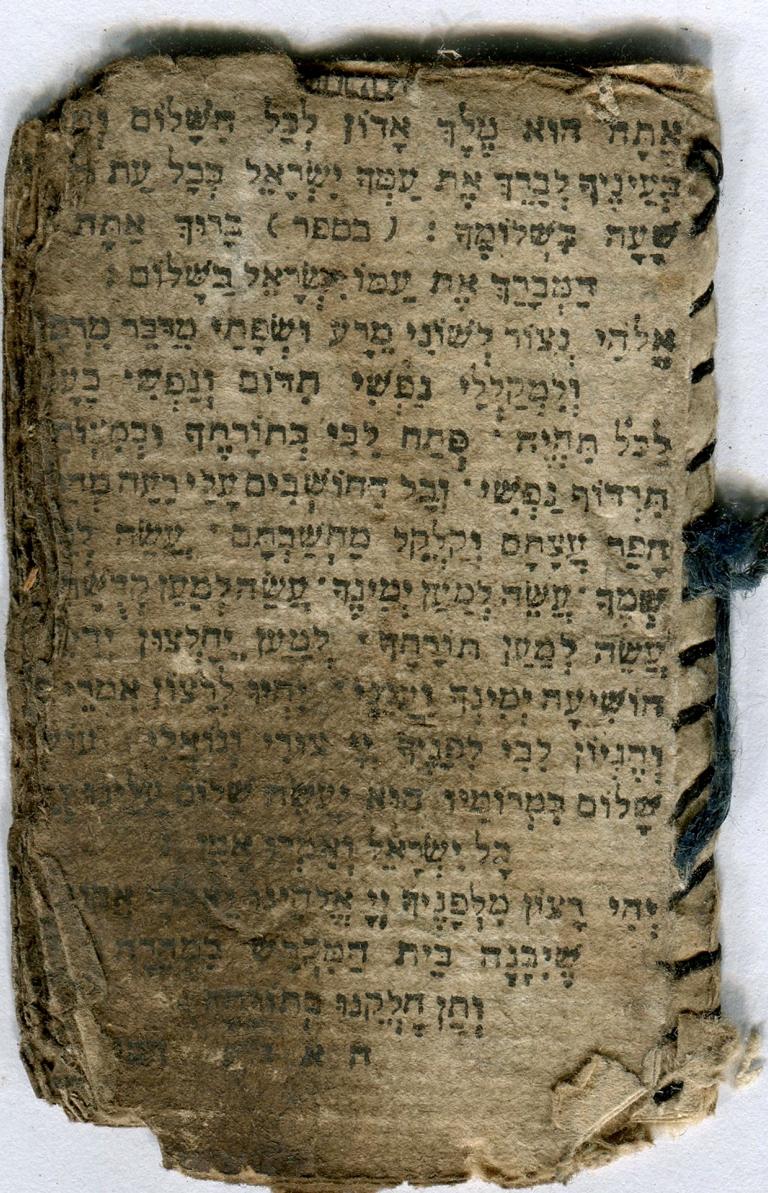 אַתָּה הוּא מֶלֶךְ אָדוֹן לְכָל הַשָּׁלוֹם
בְּעֵינֶיךָ לְבָרֵךְ אֶת עַמְּךָ יִשְׂרָאֵל בְּכָל עֵת
שָׁעָה בִּשְׁלוֹמֶךָ : ( בספר ) בָּרוּךְ אַתָּה
הַמְבָרֵךְ אֶת עַמּוֹ יִשְׂרָאֵל בַּשָּׁלוֹם :
אֱלֹהַי נְצוֹר לְשׁוֹנִי מֵרָע וּשְׂפָתַי מִדַּבֵּר
וְלִמְקַלְלַי נַפְשִׁי תִדּוֹם וְנַפְשִׁי
לַכֹּל תִּהְיֶה · פְּתַח לִבִּי בְּתוֹרָתֶךָ
תִּרְדּוֹף נַפְשִׁי · וְכָל הַחוֹשְׁבִים עָלַי רָעָה
הָפֵר עֲצָתָם וְקַלְקֵל מַחְשַׁבְתָּם · עֲשֵׂה
שְׁמֶךָ · עֲשֵׂה לְמַעַן יְמִינֶךָ · עֲשֵׂה לְמַעַן
עֲשֵׂה לְמַעַן תּוֹרָתֶךָ · לְמַעַן יֵחָלְצוּן
הוֹשִׁיעָה יְמִינְךָ וַעֲנֵנִי · יִהְיוּ לְרָצוֹן אִמְרֵי
וְהֶגְיוֹן לִבִּי לְפָנֶיךָ יְיָ צוּרִי וְגוֹאֲלִי ·
שָׁלוֹם בִּמְרוֹמָיו הוּא יַעֲשֶׂה שָׁלוֹם עָלֵינוּ
כָּל יִשְׂרָאֵל וְאִמְרוּ אָמֵן :
יְהִי רָצוֹן מִלְּפָנֶיךָ יְיָ אֱלֹהֵינוּ
שֶׁיִּבָּנֶה בֵּית הַמִּקְדָּשׁ בִּמְהֵרָה
וְתֵן חֶלְקֵנוּ בְּתוֹרָתֶךָ :